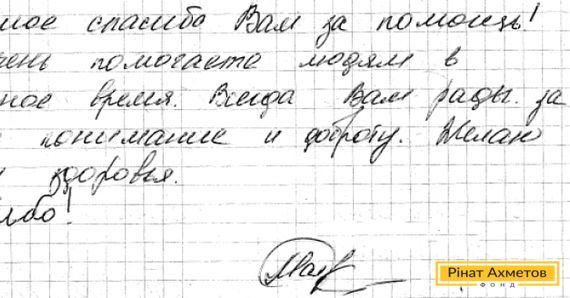 ное спасибо Вам за помощь!
чень помогаете людям в
ное время. Всегда Вам рады. за
понимание и доброту. Желаю
здоровья.
ибо!
Рінат Ахметов
ФОНД